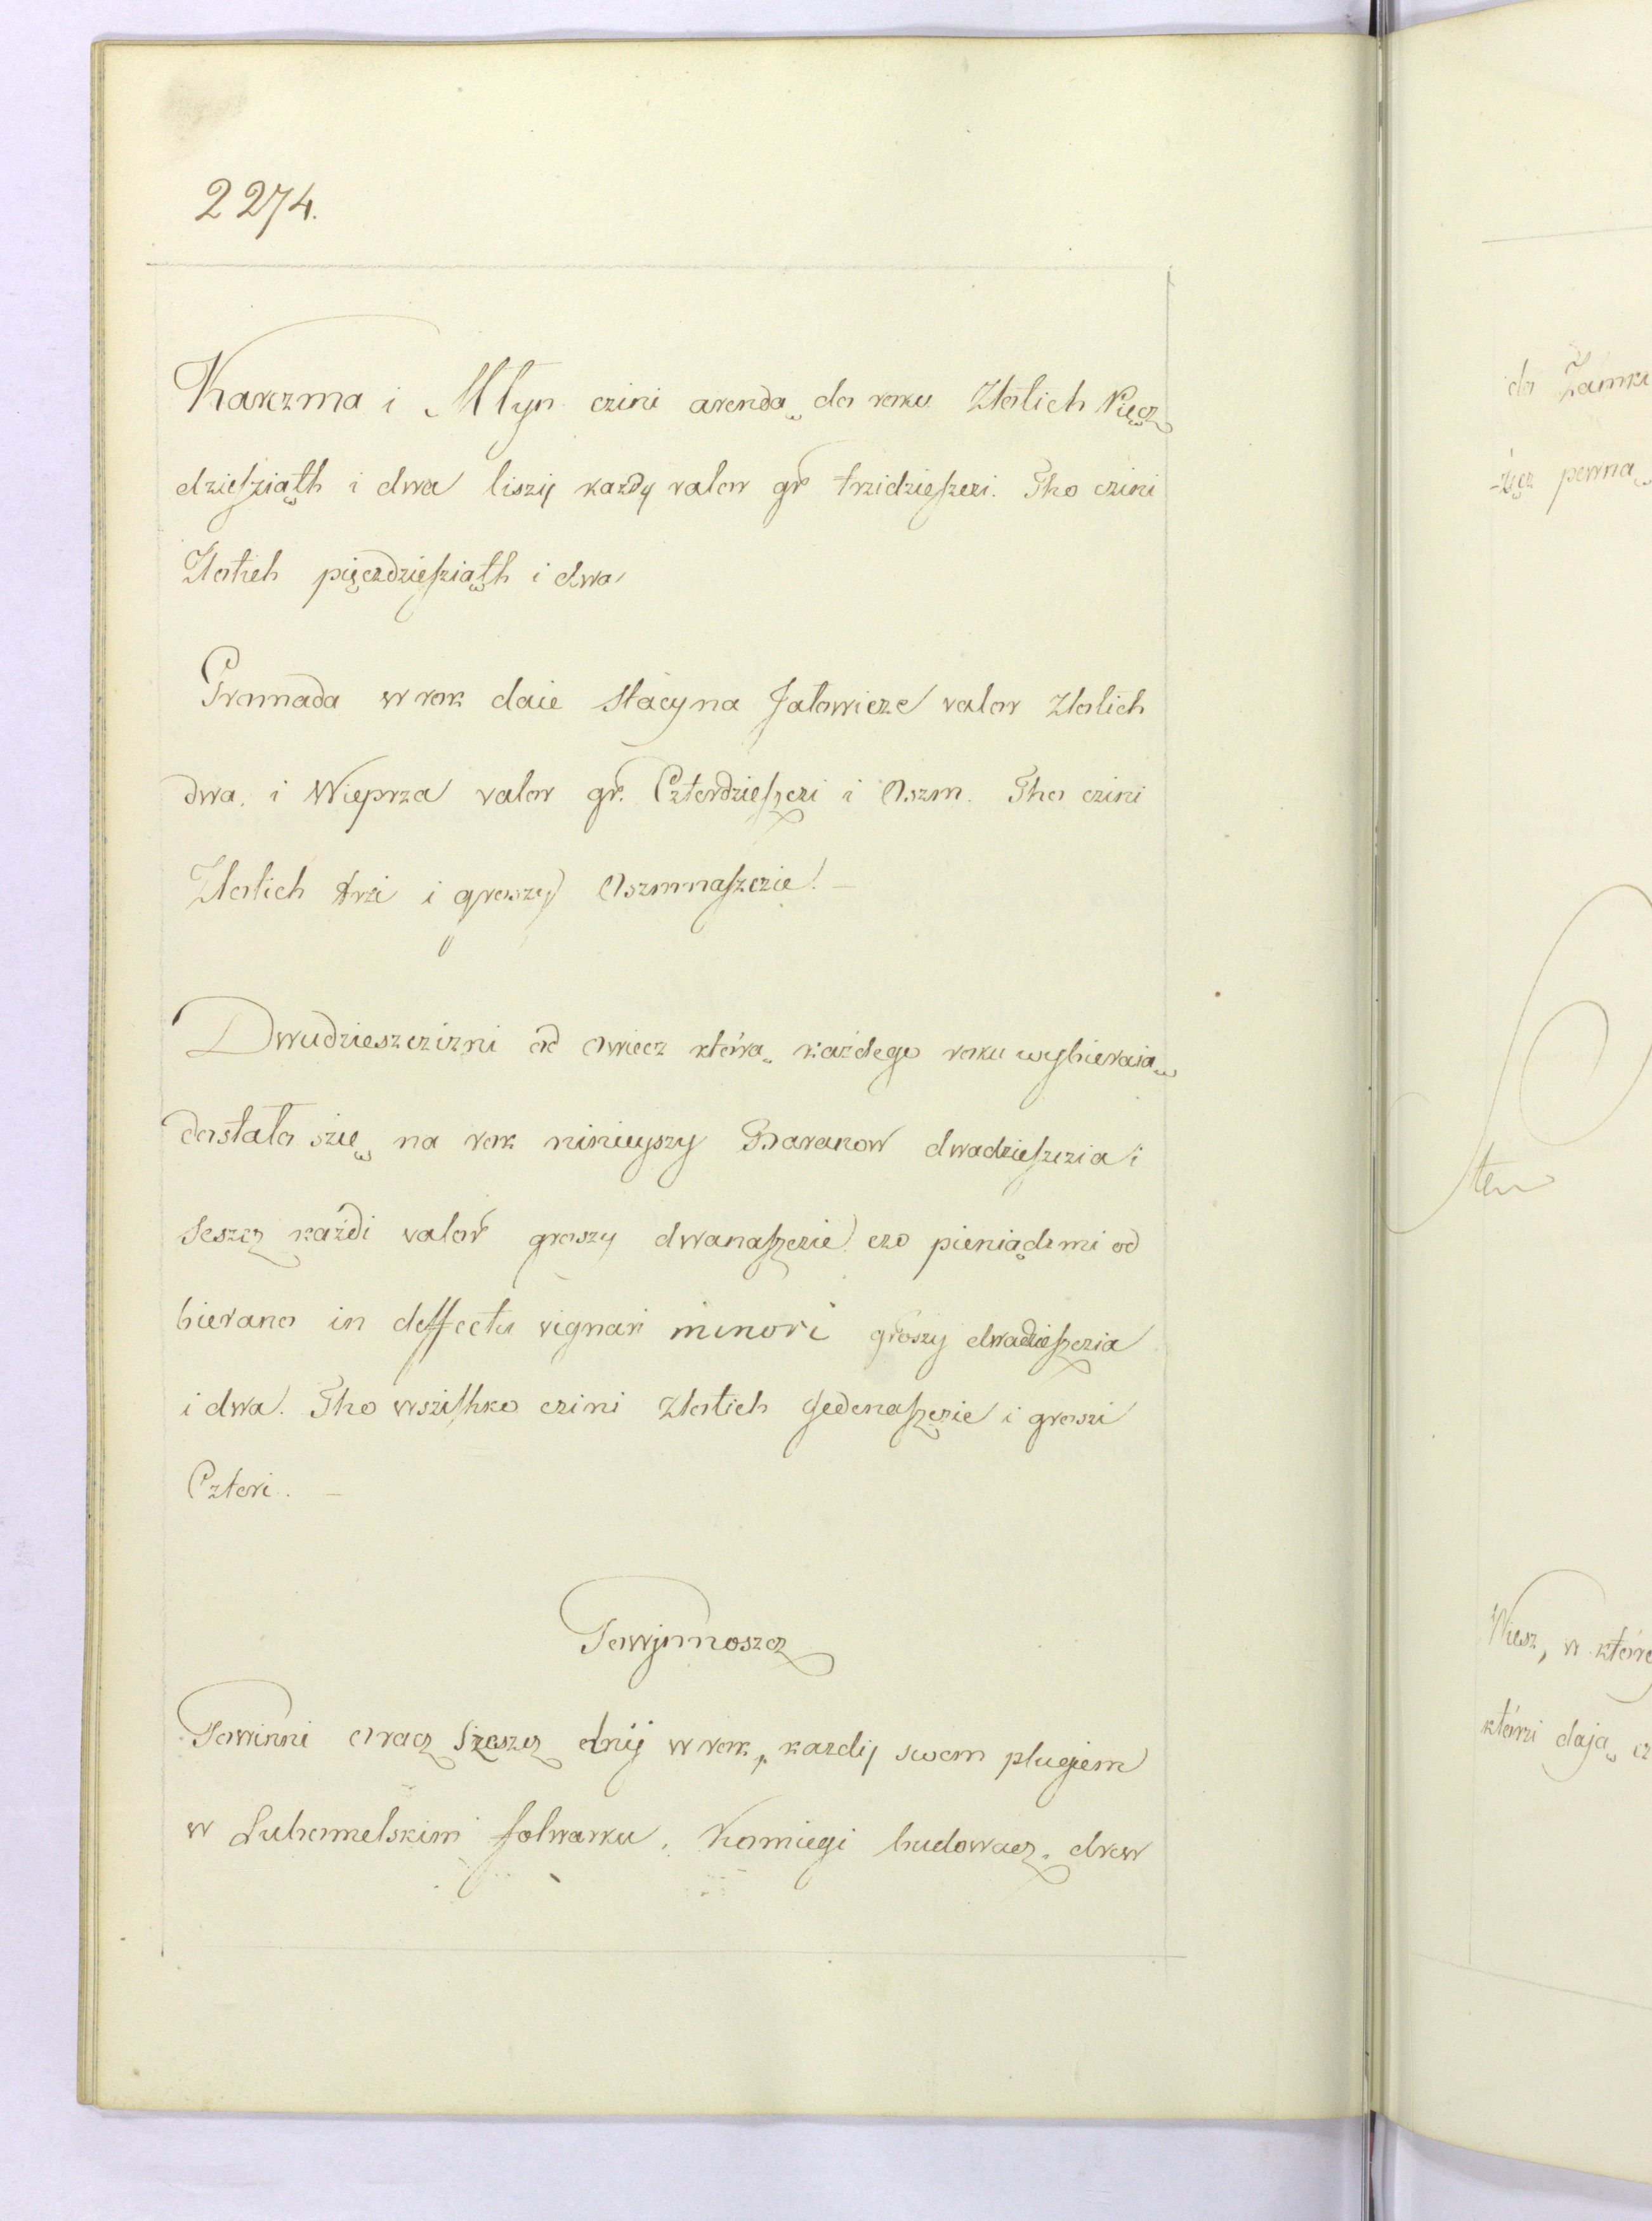 2274.
Karczma i Młyn czini arendą do roku Złotich Pięcz
dzieſziąth i dwa liczij każdy valor gr trzidzieſzczi. Tho czini
Złotich pięczdzieſziąth i dwa
Gromada w rok daie stacyna Jałowicze valor złotich
dwa. i Wieprza valor gr. Czterdzieſzczi i Oszm. Tho czini
Złotich trzi i groszy Oszmnaſzczie. –
Dwudzieszczizni od owiecz którą każdego roku wybieraią
dostało szię na rok ninieyszy Baranow dwadzieſzczia i
seszcz każdi valor groszy dwanaſzczie czo pieniądzmi od
bierano in deffectu vignari minori groszy dwadzieſzczia
i dwa. Tho wszisthko czini złotich Jedenaſzczie i groszi
Czteri. –
Powjnnoszcz
Powinni oracz szeszcz dnij w rok, każdij swem plugiem
w Luhomelskim folwarku. Komiegi budowacz, drew
do Zamku
-żęcz pewną
ten
Wiesz, w które
którzi dają cz